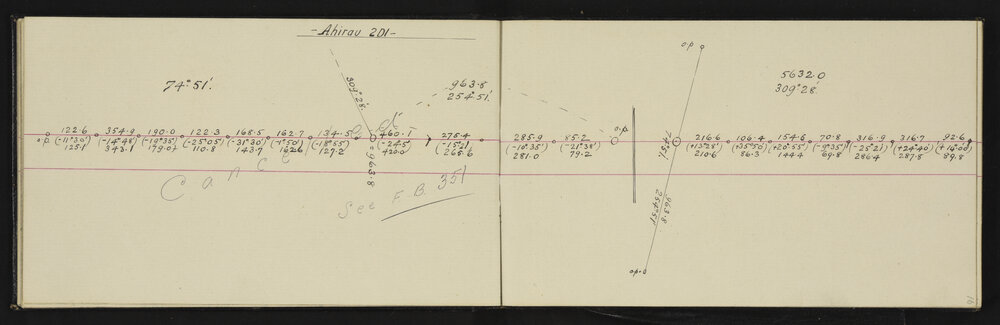 - Ahirau 2D1 -
74° 51'.
309° 28'.
963.8
254° 51'.
122.6 354.9 190.0 122.3 168.5 162.7 134.5 460.1 275.4
o.p. (-11°30') (-14°48') (-19°35') (-25°05') (-31°30') (-1°50') (-18°55') (-24°5') (-15°21')
125.1 343.1 179.0 110.8 143.7 162.6 127.2 420.0 265.6
963.8
Cancel
See F.B. 351
o.p.
5632.0
309° 28'.
o.p.
285.9 85.2 216.6 106.4 154.6 70.8 316.9 316.7 92.6
(-10°35') (-21°38') (+13°28') (+35°50') (+20°55') (-9°35') (-25°2') (+24°40') (+14°00')
281.0 79.2 210.6 86.3 144.4 69.8 286.4 287.8 89.8
74° 51'.
963.8
254° 51'
o.p.
16